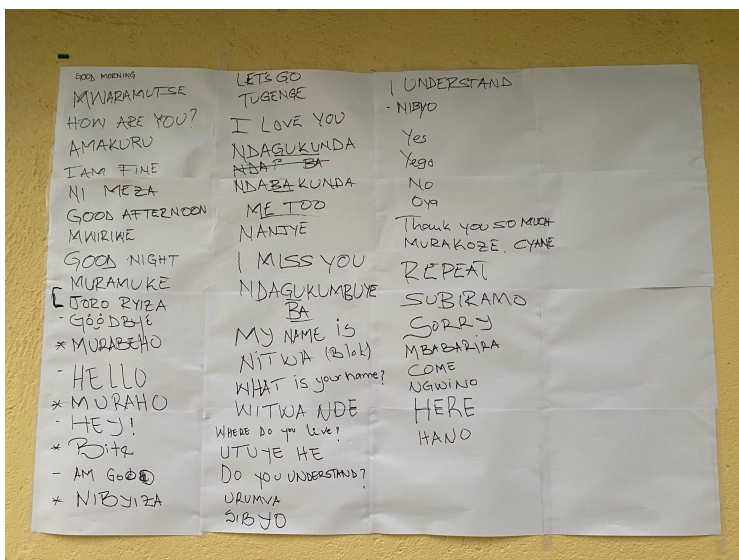 GOOD MORNING
MWARAMUTSE
HOW ARE YOU?
AMAKURU
I AM FINE
NI MEZA
GOOD AFTERNOON
MWIRIWE
GOOD NIGHT
MURAMUKE
[ JORO RYIZA
- GOODBYE
* MURABEHO
- HELLO
* MURAHO
- HEY!
* Bite
- AM GOOD
* NIBYIZA
LET'S GO
TUGENGE
I LOVE YOU
NDAGUKUNDA
NDABAKUNDA
ME TOO
NANJYE
I MISS YOU
NDAGUKUMBUYE
BA
MY NAME IS
NITWA (Blok)
WHAT is your name?
WITWA NDE
WHERE DO you live?
UTUYE HE
DO YOU UNDERSTAND?
URUMVA
SIBYO
I UNDERSTAND
- NIBYO
Yes
Yego
No
Oya
Thank you so MUCH
MURAKOZE CYANE
REPEAT
SUBIRAMO
SORRY
MBABARIRA
COME
NGWINO
HERE
HANO